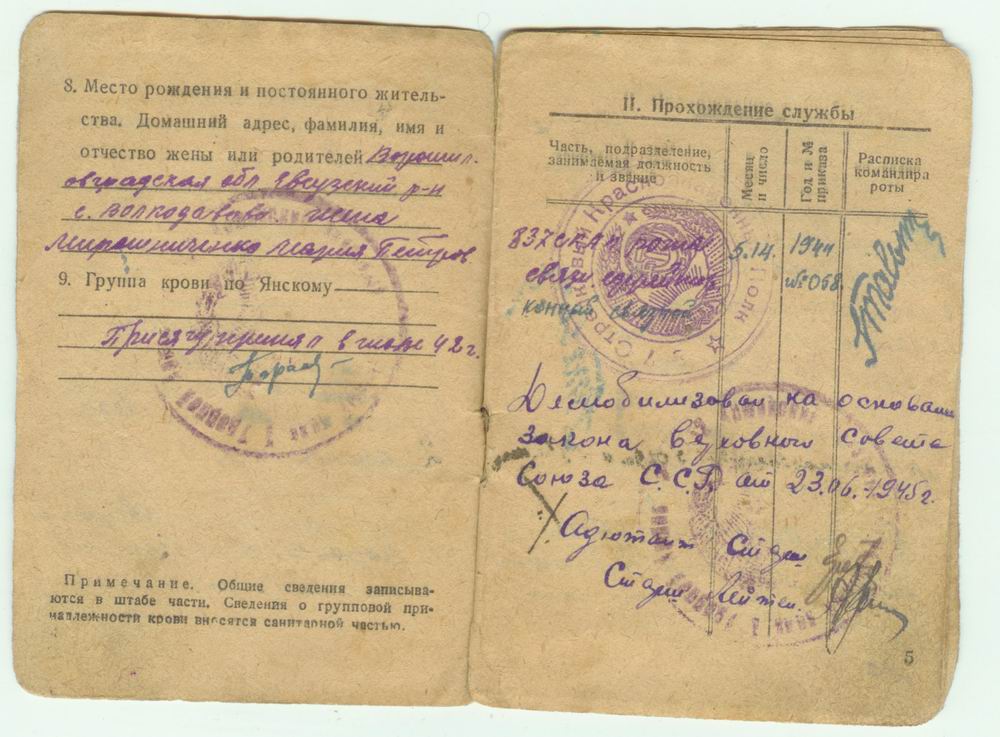 8. Место рождения и постоянного житель-
ства. Домашний адрес, фамилия, имя и
отчество жены или родителей Ворошил.
овградская обл Евсузский р-н
с. Волкодавово жена
Мирошниченко Мария Петров
9. Группа крови по Янскому
Присягу принял в 42 г.
Примечание. Общие сведения записыва-
ются в штабе части. Сведения о групповой при-
надлежности крови вносятся санитарной частью.
II. Прохождение службы
Часть, подразделение,
занимаемая должность
и звание
Месяц
и число
Год и №
приказа
Расписка
командира
роты
837 рота 5.14. 1944
связи №058
Демобилизован на основании
закона верховного совета
Союза С.С.Р. от 23.06.1945г.
Адютант
Старш Лейтен.
5